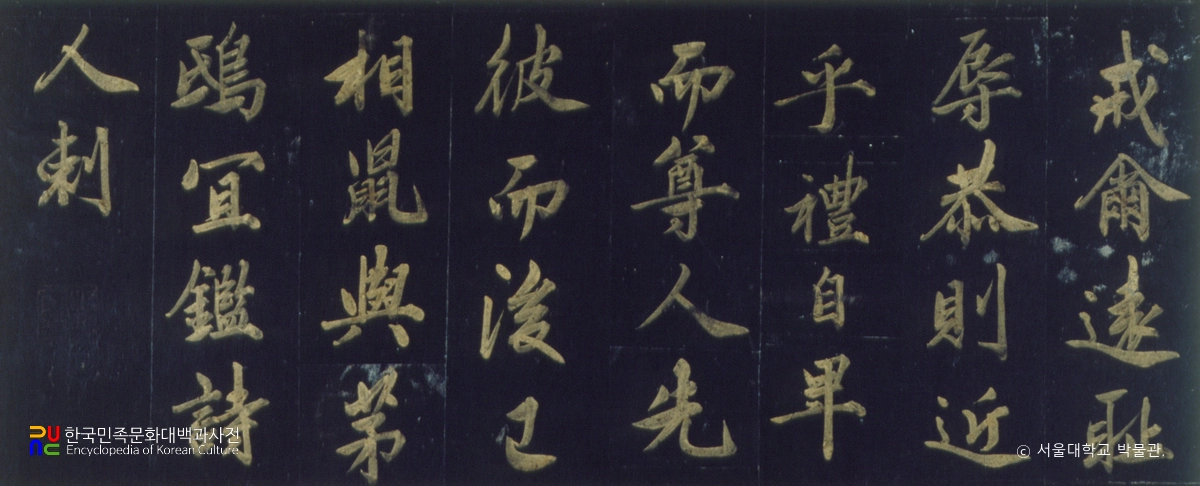 戒爾遠恥
辱恭則近
乎禮自卑
而尊人先
彼而後己
相鼠與茅
鴟冝鑑詩
人刺
한국민족문화대백과사전
Encyclopedia of Korean Culture
ⓒ 서울대학교 박물관.